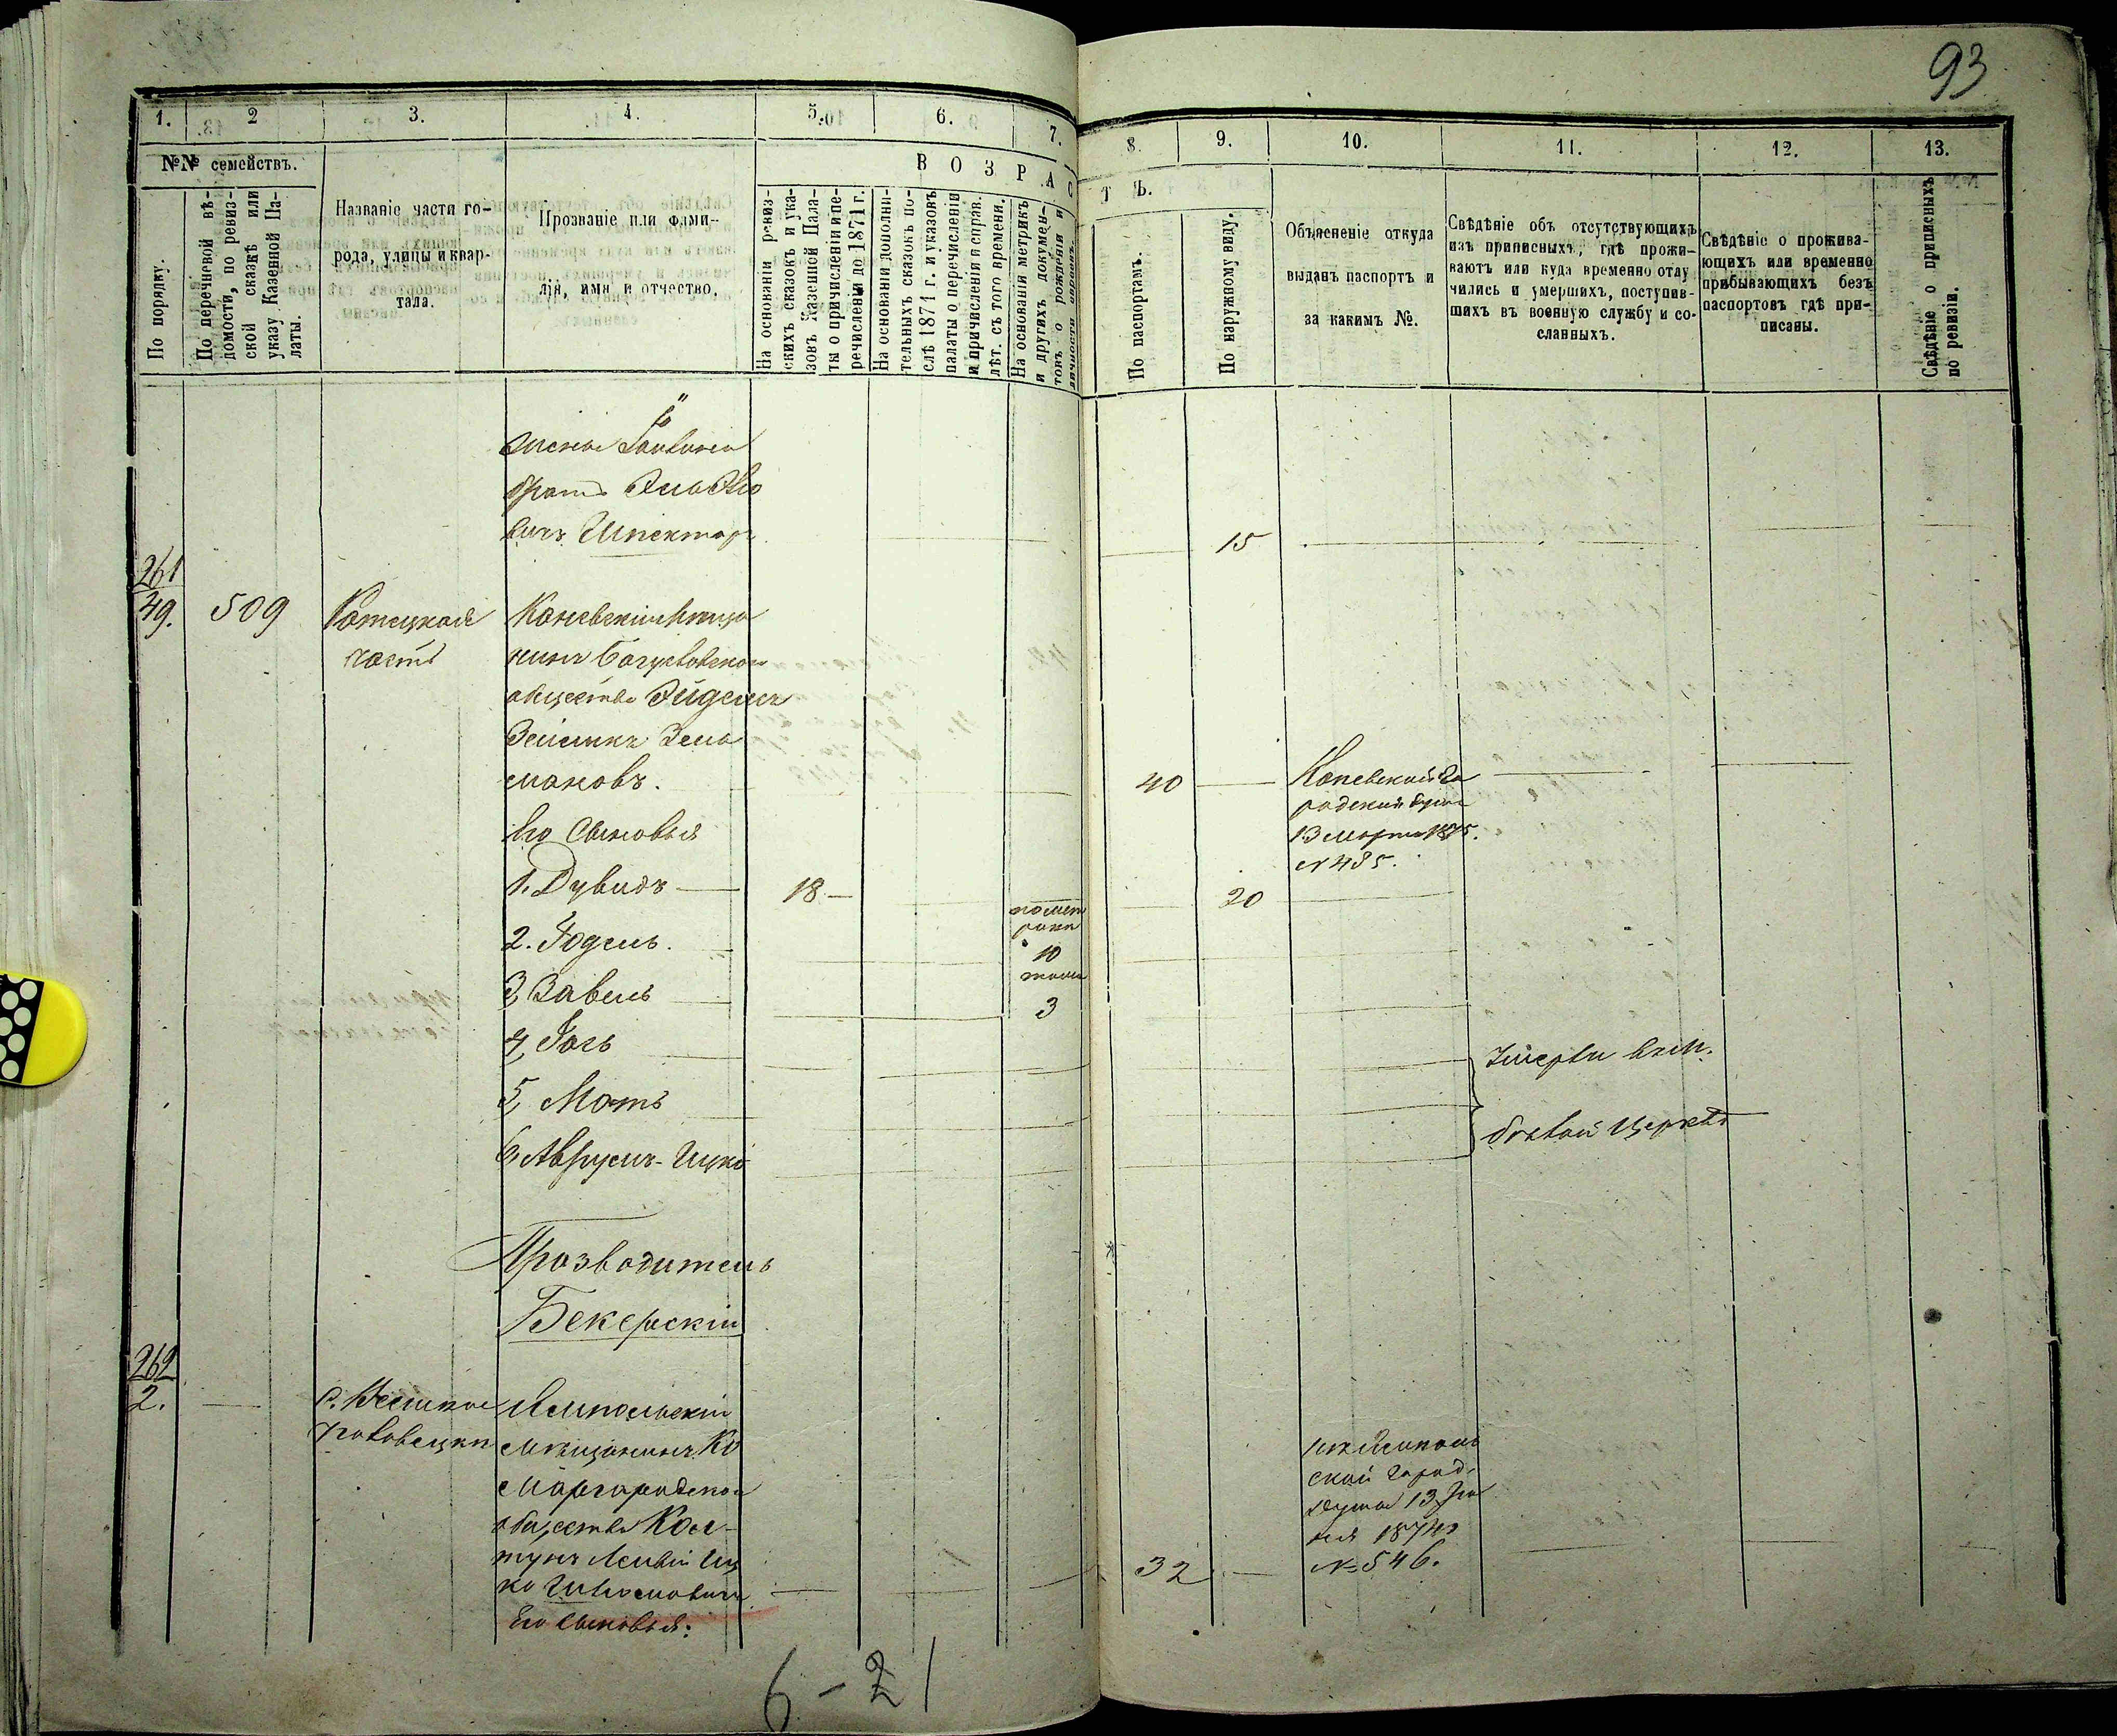 93
1. 2 3. 4. 5. 6. 7. 8. 9. 10. 11. 12. 13.
№№ семействъ.
По порядку.
По перечневой вѣ-
домости, по ревиз-
ской сказкѣ или
указу Казенной Па-
латы.
Названіе части го-
рода, улицы и квар-
тала.
Прозваніе или фами-
лія, имя и отчество.
ВОЗРАСТЪ.
На основаніи ревиз-
скихъ сказокъ и ука-
зовъ Казенной Пала-
ты о причисленіи и пе-
речисленіи до 1871 г.
На основаніи дополни-
тельныхъ сказокъ по-
слѣ 1871 г. и указовъ
палаты о перечисленіи
и причисленіи и справ.
лѣт. съ того времени.
На основаніи метрикъ
и другихъ докумен-
товъ о рожденіи и
личности справкѣ.
По паспортамъ.
По наружному виду.
Объясненіе откуда
выданъ паспортъ и
за какимъ №.
Свѣдѣніе объ отсутствующихъ
изъ приписныхъ, гдѣ прожи-
ваютъ или куда временно отлу
чились и умершихъ, поступив-
шихъ въ военную службу и со-
сланныхъ.
Свѣдѣніе о прожива-
ющихъ или временно
прибывающихъ безъ
паспортовъ гдѣ при-
писаны.
Свѣдѣніе о приписныхъ
по ревизіи.
братъ
вичъ Шпекторъ
15
261
49. 509
часть
Каневскій мѣща
нинъ Богуславскаго
общества Эйдельм
Зельманъ Зель
мановъ.
40
Каневской Го
родской Думы
13 марта 1875.
№ 485.
Его сыновья
1. Дувидъ 18 20
2. Іодель.
помет
рики
10
3, Завель
тоже
3
4,
5, Моть
6, Аврумъ-Ицко
Умерли въ м.
бѣлой Церкви
Прозводитель
Бекерскій
262
2.
с. Великое
Половецки
Ямпольскій
мѣщанинъ Ко
маргородскаго
общества Кол-
тунъ Лейвій Иц
ко Шліомовичъ
32
изъ Ямполь
ской Город.
Думы 13 Ію
ля 1874
№ 546.
Его сыновья:
6 - 21